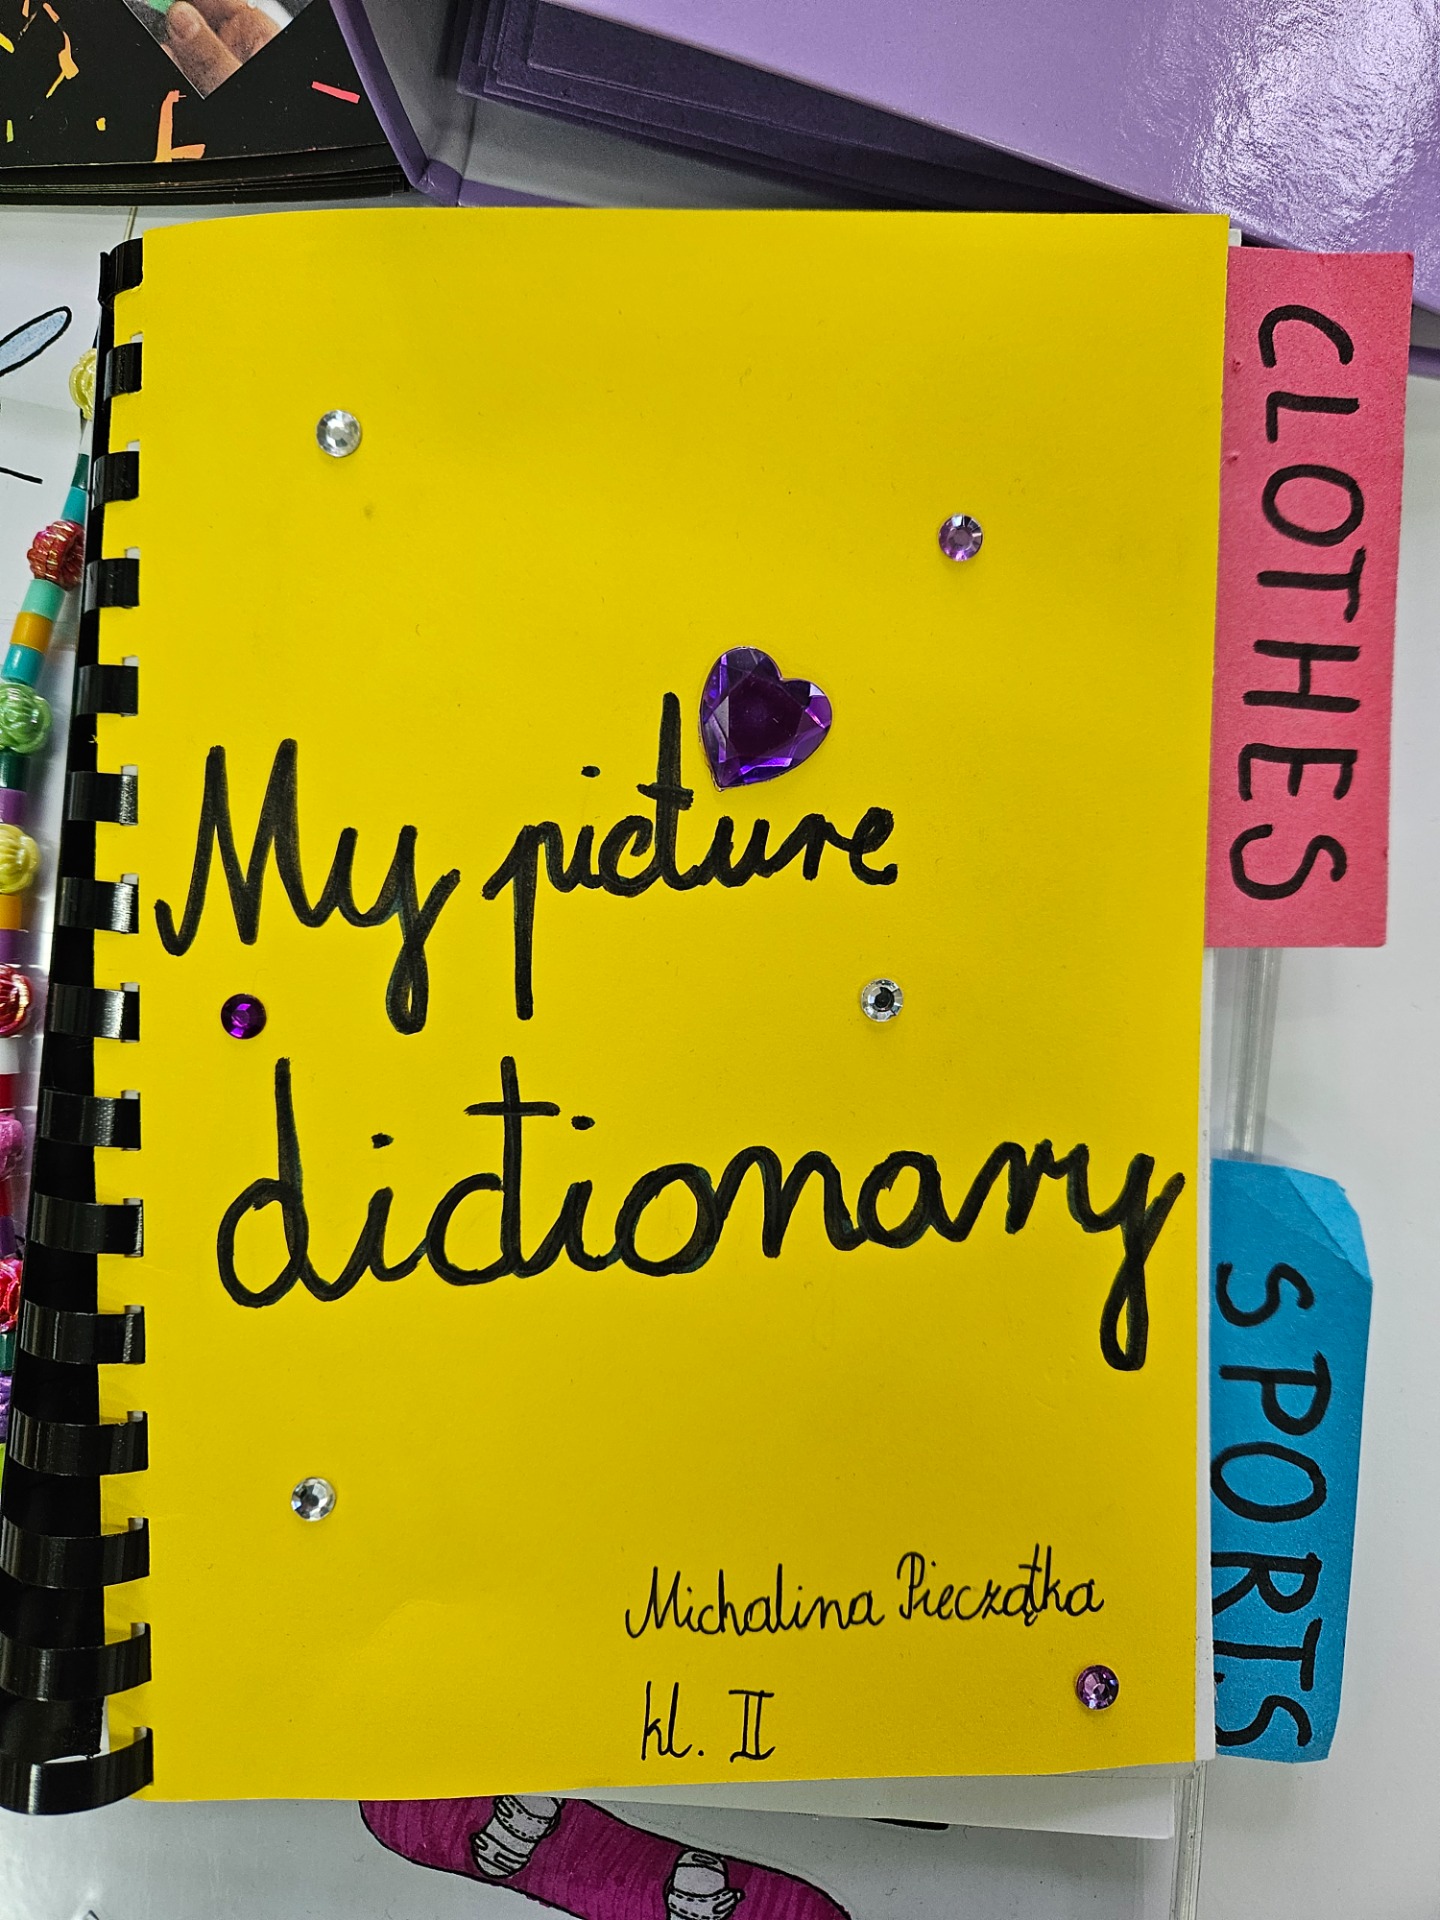 My picture
dictionary
Michalina Pieczątka
kl. II
CLOTHES
SPORTS